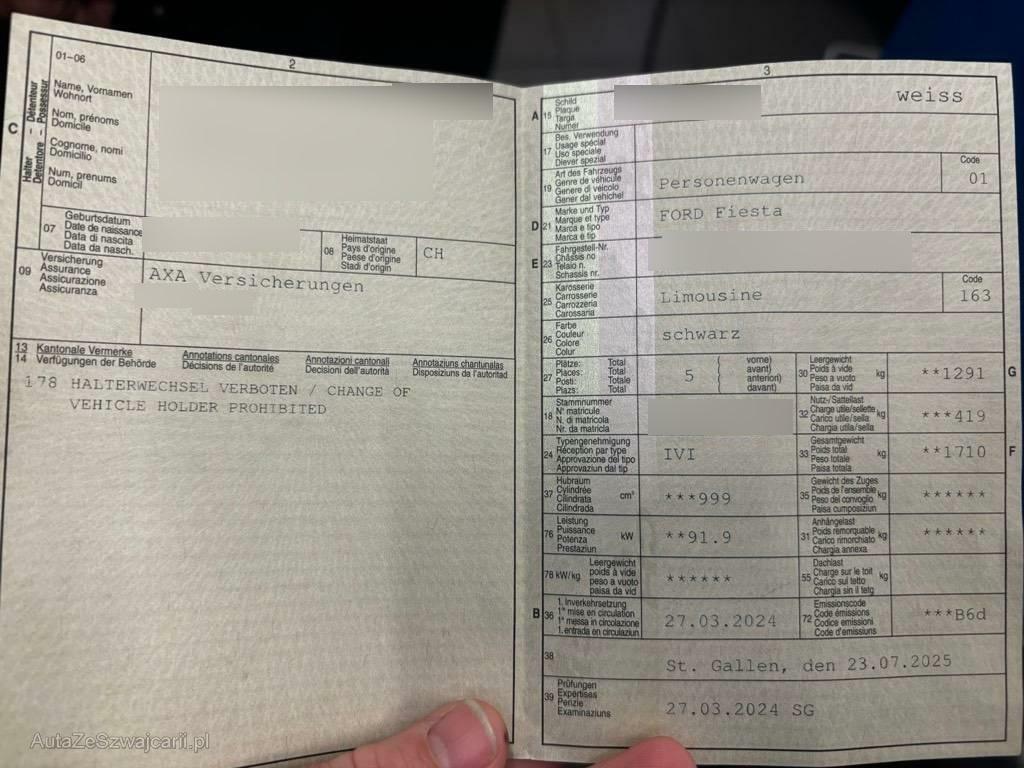 2
01-06
C
Halter – Détenteur
Detentore – Possessur
Name, Vornamen
Wohnort
Nom, prénoms
Domicile
Cognome, nomi
Domicilio
Num, prenums
Domicil
07
Geburtsdatum
Date de naissance
Data di nascita
Data da nasch.
08
Heimatstaat
Pays d'origine
Paese d'origine
Stadi d'origin
CH
09
Versicherung
Assurance
Assicurazione
Assicuranza
AXA Versicherungen
13 Kantonale Vermerke Annotations cantonales Annotazioni cantonali Annotaziuns chantunalas
14 Verfügungen der Behörde Décisions de l'autorité Decisioni dell'autorità Disposiziuns da l'autoritad
178 HALTERWECHSEL VERBOTEN / CHANGE OF
VEHICLE HOLDER PROHIBITED
3
A 15
Schild
Plaque
Targa
Numer
weiss
17
Bes. Verwendung
Usage spécial
Uso speciale
Diever spezial
19
Art des Fahrzeugs
Genre de véhicule
Genere di veicolo
Gener dal vehichel
Personenwagen
Code
01
D 21
Marke und Typ
Marque et type
Marca e tipo
Marca e tip
FORD Fiesta
E 23
Fahrgestell-Nr.
Châssis no
Telaio n.
Schassis nr.
25
Karosserie
Carrosserie
Carrozzeria
Carossaria
Limousine
Code
163
26
Farbe
Couleur
Colore
Colur
schwarz
27
Plätze: Total
Places: Total
Posti: Totale
Plazs: Total
5
( vorne)
avant)
anteriori)
davant)
30
Leergewicht
Poids à vide
Peso a vuoto
Paisa da vid
kg
**1291
G
18
Stammnummer
N° matricule
N. di matricola
Nr. da matricla
32
Nutz-/Sattellast
Charge utile/sellette
Carico utile/sella
Chargia utila/sella
kg
***419
24
Typengenehmigung
Réception par type
Approvazione del tipo
Approvaziun dal tip
IVI
33
Gesamtgewicht
Poids total
Peso totale
Paisa totala
kg
**1710
F
37
Hubraum
Cylindrée
Cilindrata
Cilindrada
cm³
***999
35
Gewicht des Zuges
Poids de l'ensemble
Peso del convoglio
Paisa cumposiziun
kg
******
76
Leistung
Puissance
Potenza
Prestaziun
kW
**91.9
31
Anhängelast
Poids remorquable
Carico rimorchiato
Chargia annexa
kg
******
78 kW/kg
Leergewicht
poids à vide
peso a vuoto
paisa da vid
******
55
Dachlast
Charge sur le toit
Carico sul tetto
Chargia sin il tetg
kg
B 36
1. Inverkehrsetzung
1re mise en circulation
1a messa in circolazione
1. entrada en circulaziun
27.03.2024
72
Emissionscode
Code émissions
Codice emissioni
Code d'emissiuns
***B6d
38
St. Gallen, den 23.07.2025
39
Prüfungen
Expertises
Perizie
Examinaziuns
27.03.2024 SG
AutaZeSzwajcarii.pl